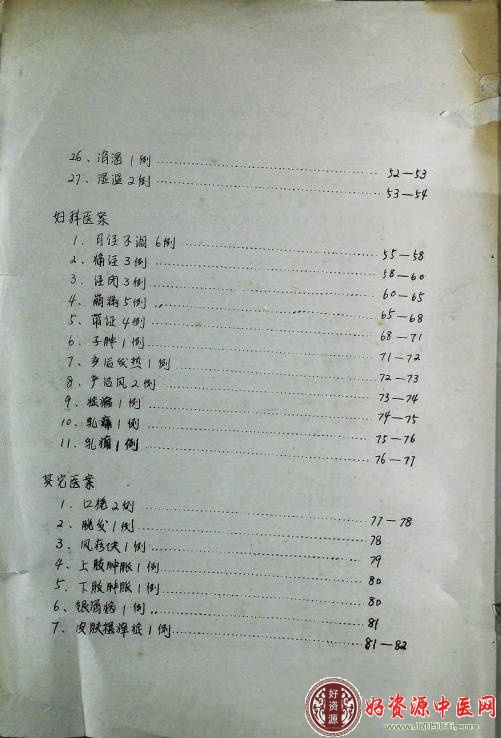 26、消渴1例 52—53
27、湿温2例 53—54
妇科医案
1、月经不调6例 55—58
2、痛经3例 58—60
3、经闭3例 60—65
4、崩漏5例 65—68
5、带证4例 68—71
6、子肿1例 71—72
7、产后发热1例 72—73
8、产后风2例 73—74
9、症瘕1例 74—75
10、乳痛1例 75—76
11、乳癖1例 76—77
其它医案
1、口疮2例 77—78
2、脱发1例 78
3、风疹块1例 79
4、上肢肿胀1例 80
5、下肢肿胀1例 80
6、银屑病1例 81
7、皮肤搔痒症1例 81—82
好资源
好资源中医网